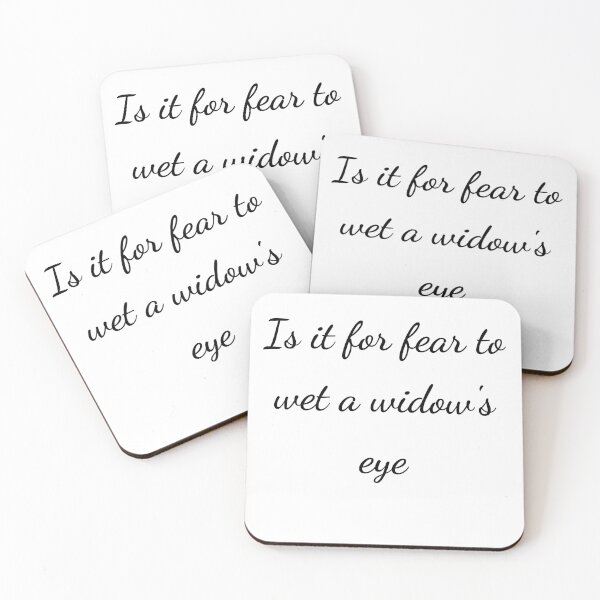 Is it for fear to
wet a widow'
Is it for fear to
wet a widow's
eye
Is it for fear to
wet a widow's
eye
Is it for fear to
wet a widow's
eye